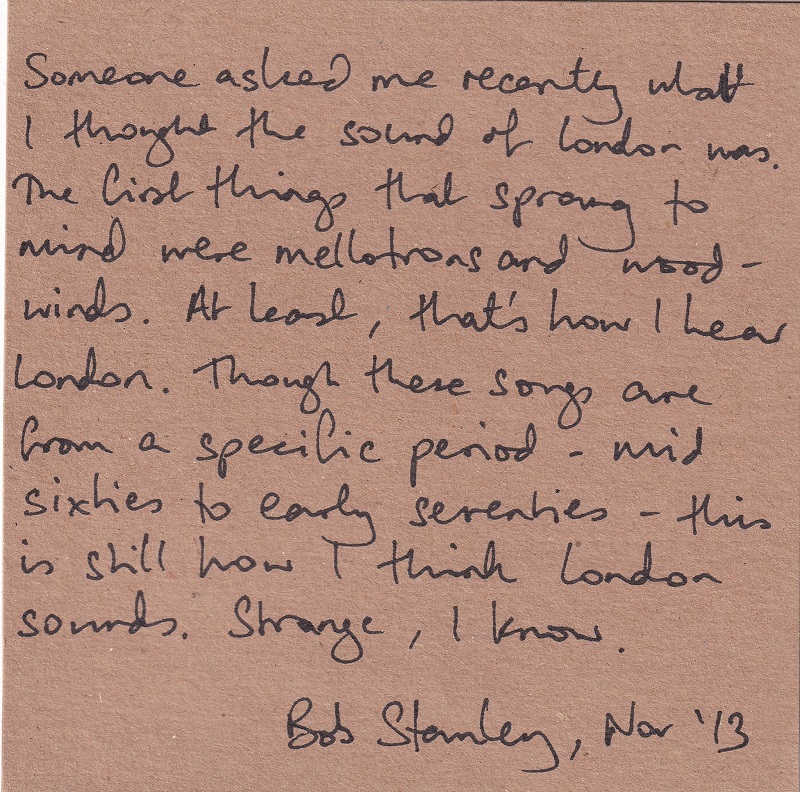 Someone asked me recently what
I thought the sound of London was.
The first things that sprang to
mind were mellotrons and wood-
winds. At least, that's how I hear
London. Though these songs are
from a specific period - mid
sixties to early seventies - this
is still how I think London
sounds. Strange, I know.
Bob Stanley, Nov '13